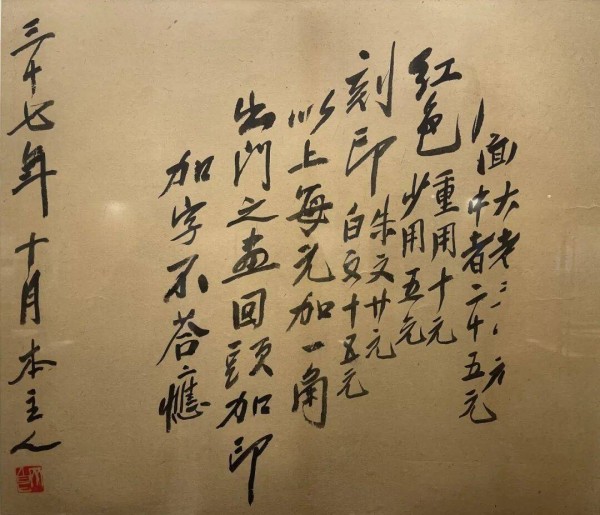 面
大者
中者二十五元
红色
重用十元
少用五元
刻印
朱文廿元
白文十五元
以上每元加一角
出門之畫回頭加印
加字不荅應
三十七年十月本主人